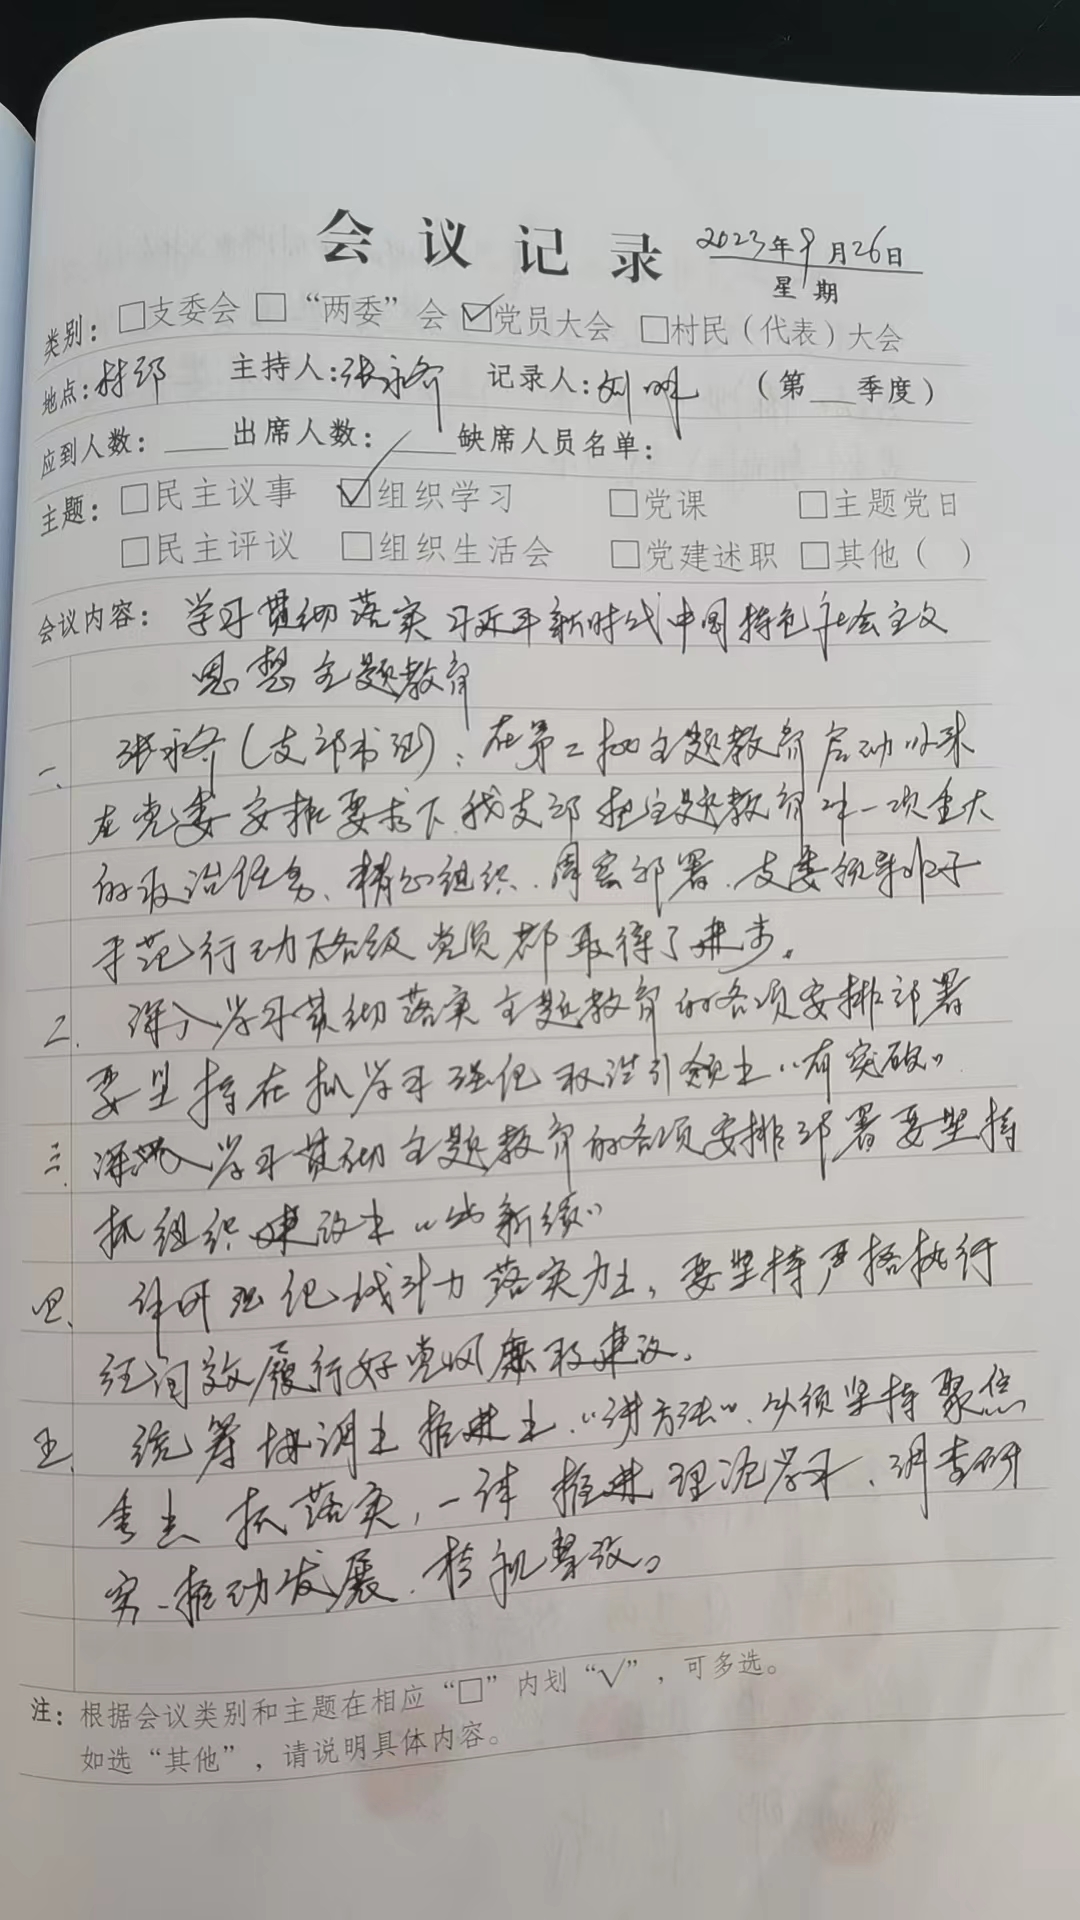 会议记录 2023年9月26日
星期
类别：□支委会 □“两委”会 ☑党员大会 □村民（代表）大会
地点：村部 主持人：张永齐 记录人：刘 （第__季度）
应到人数：____出席人数：____缺席人员名单：
主题：□民主议事 ☑组织学习 □党课 □主题党日
□民主评议 □组织生活会 □党建述职 □其他（ ）
会议内容：学习贯彻落实习近平新时代中国特色社会主义
思想主题教育
一、张永齐（支部书记）：在第二批主题教育启动以来
在党委安排要求下，我支部把主题教育作一项重大
的政治任务、精心组织、周密部署、支委领导班子
示范行动各级党员都取得了进步。
二、深入学习贯彻落实主题教育的各项安排部署
要坚持在抓学习强化政治引领上“有突破”
三、深入学习贯彻主题教育的各项安排部署要坚持
抓组织建设上“出新绩”
四、强化战斗力落实力上，要坚持严格执行
履行好党风廉政建设。
五、统筹协调上推进上“讲方法”、必须坚持聚焦
重点抓落实，一体推进理论学习、调查研
究、推动发展、检视整改。
注：根据会议类别和主题在相应“□”内划“√”，可多选。
如选“其他”，请说明具体内容。